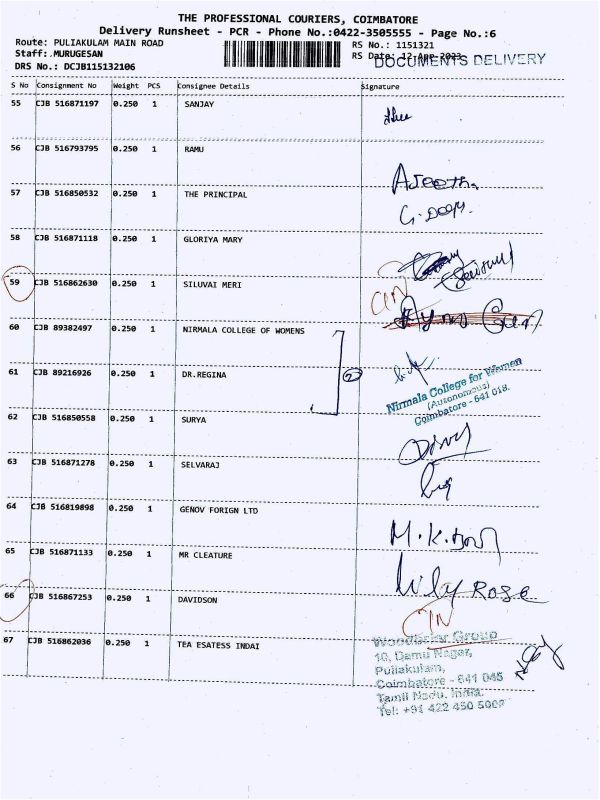 THE PROFESSIONAL COURIERS, COIMBATORE
Delivery Runsheet - PCR - Phone No.:0422-3505555 - Page No.:6
Route: PULIAKULAM MAIN ROAD
RS No.: 1151321
Staff: MURUGESAN
RS Date: 12-Apr-2023
DOCUMENTS DELIVERY
DRS No.: DCJB115132106
S No Consignment No Weight PCS Consignee Details Signature
55 CJB 516871197 0.250 1 SANJAY
56 CJB 516793795 0.250 1 RAMU
Ajeetha
57 CJB 516850532 0.250 1 THE PRINCIPAL
58 CJB 516871118 0.250 1 GLORIYA MARY
59 CJB 516862630 0.250 1 SILUVAI MERI
CIN
60 CJB 89382497 0.250 1 NIRMALA COLLEGE OF WOMENS
61 CJB 89216926 0.250 1 DR.REGINA
2
Nirmala College for Women
(Autonomous)
Coimbatore - 641 018.
62 CJB 516850558 0.250 1 SURYA
63 CJB 516871278 0.250 1 SELVARAJ
64 CJB 516819898 0.250 1 GENOV FORIGN LTD
65 CJB 516871133 0.250 1 MR CLEATURE
Lily ROSE
66 CJB 516867253 0.250 1 DAVIDSON
CIN
67 CJB 516862036 0.250 1 TEA ESATESS INDAI
Woodbriar Group
10, Damu Nagar,
Puliakulam,
Coimbatore - 641 045
Tamil Nadu, India.
Tel: +91 422 450 5002